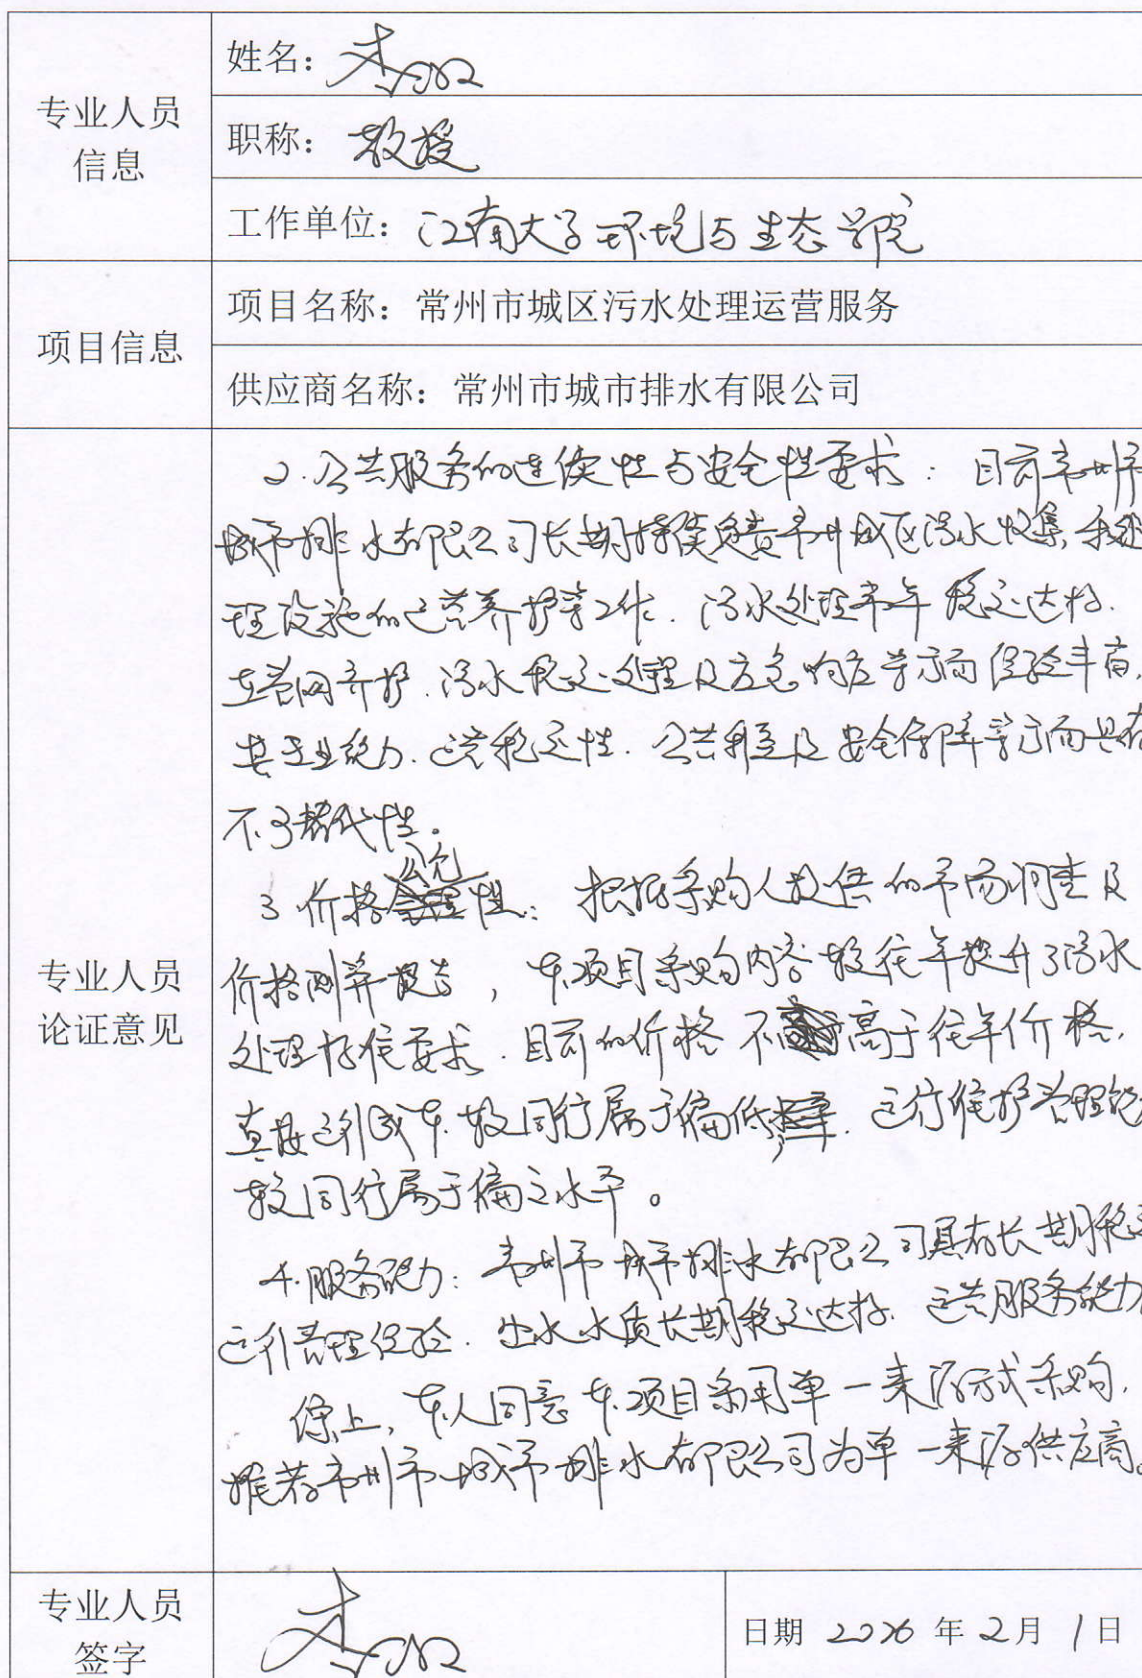 专业人员
信息
姓名：李
职称：教授
工作单位：江南大学环境与生态学院
项目信息
项目名称：常州市城区污水处理运营服务
供应商名称：常州市城市排水有限公司
专业人员
论证意见
2.公共服务的连续性与安全性要求：目前常州市
城市排水有限公司长期持续负责常州城区污水收集、处
理设施的运营养护等工作，污水处理常年稳定达标，
在管网养护、污水稳定处理及应急响应等方面经验丰富，
其专业能力、运营稳定性、公共利益及安全保障等方面具有
不可替代性。
3 价格公允性：根据采购人提供的市场调查及
价格测算报告，本项目采购内容较往年提升了污水
处理标准要求，目前的价格不高于往年价格，
直接运行成本较同行属于偏低，运行维护管理
较同行属于偏高水平。
4.服务能力：常州市城市排水有限公司具有长期稳定
运行管理经验，出水水质长期稳定达标，运营服务能力
综上，本人同意本项目采用单一来源方式采购，
推荐常州市城市排水有限公司为单一来源供应商。
专业人员
签字
李
日期 2026 年 2 月 1 日